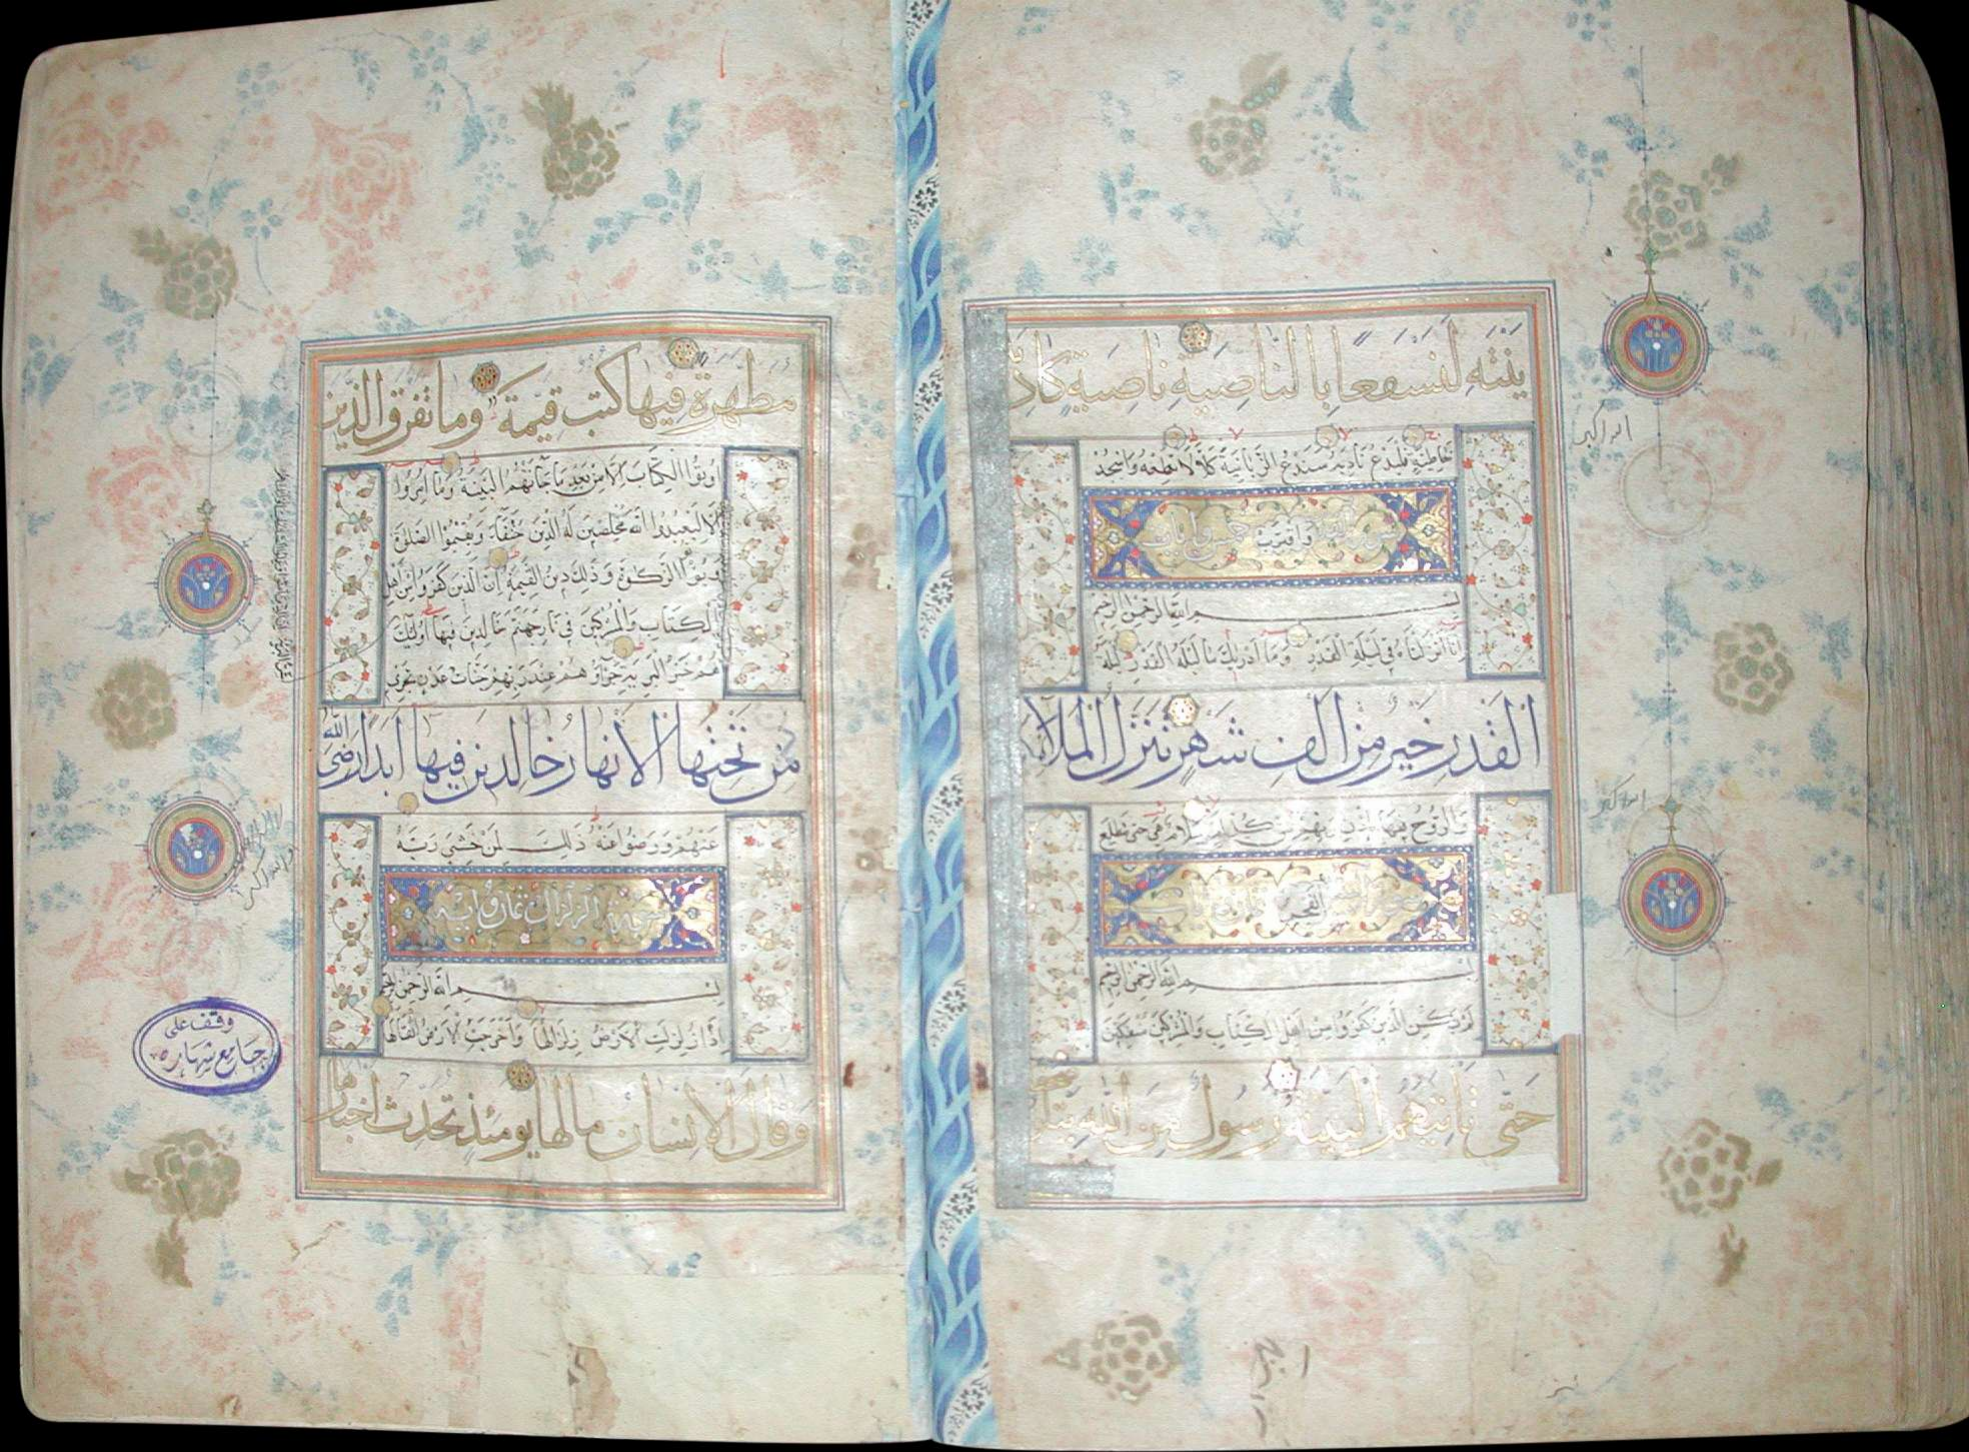 ينته لنسفعا بالناصية ناصية كاذ
خاطئة فليدع ناديه سندع الزبانية كلا لا تطعه واسجد
واقترب
بسم الله الرحمن الرحيم
انا انزلناه في ليلة القدر وما ادريك ما ليلة القدر ليلة
القدر خير من الف شهر تنزل الملائكة
والروح فيها باذن ربهم من كل امر سلام هي حتى مطلع
الفجر
بسم الله الرحمن الرحيم
لم يكن الذين كفروا من اهل الكتاب والمشركين منفكين
حتى تاتيهم البينة رسول من الله يتلو
الله اكبر
الله اكبر
مطهرة فيها كتب قيمة وما تفرق الذين
اوتوا الكتاب الا من بعد ما جاءتهم البينة وما امروا
الا ليعبدوا الله مخلصين له الدين حنفاء ويقيموا الصلوة
ويؤتوا الزكوة وذلك دين القيمة ان الذين كفروا من اهل
الكتاب والمشركين في نار جهنم خالدين فيها اولئك
هم خير البرية جزاؤهم عند ربهم جنات عدن تجري
من تحتها الانهار خالدين فيها ابدا رضي الله
عنهم ورضوا عنه ذلك لمن خشي ربه
سورة الزلزال ثمان اية
بسم الله الرحمن الرحيم
اذا زلزلت الارض زلزالها واخرجت الارض اثقالها
وقال الانسان ما لها يومئذ تحدث اخبارها
وقف على
جامع شهاره